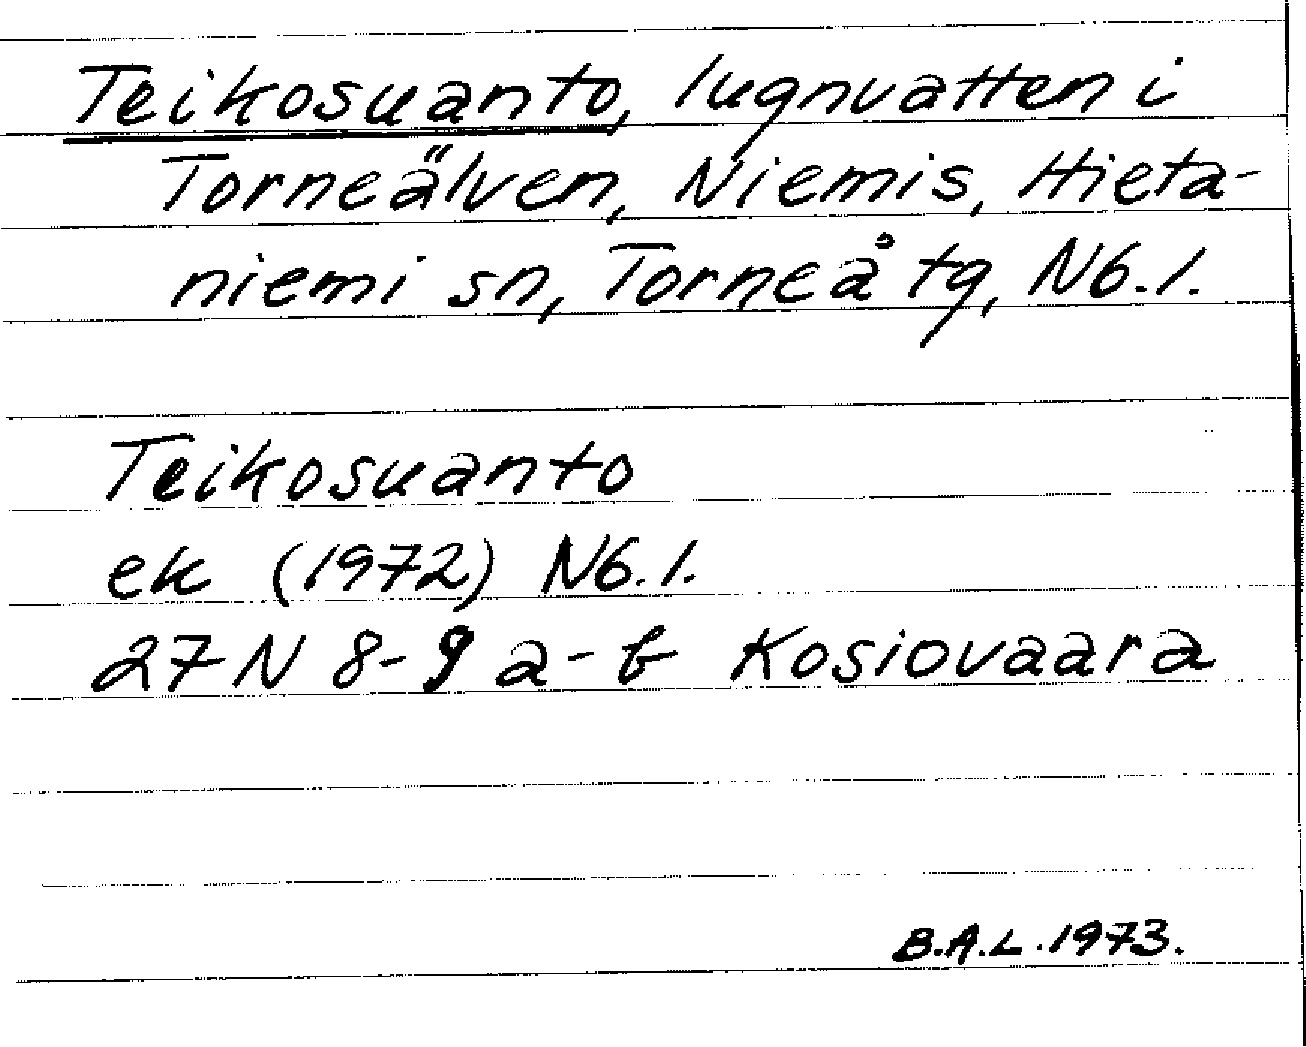 Teikosuanto, lugnvatten i
Torneälven, Niemis, Hieta-
niemi sn, Torneå tg, Nb.l.
Teikosuanto
ek (1972) Nb.l.
27 N 8-9 a-b Kosiovaara
B.A.L. 1973.